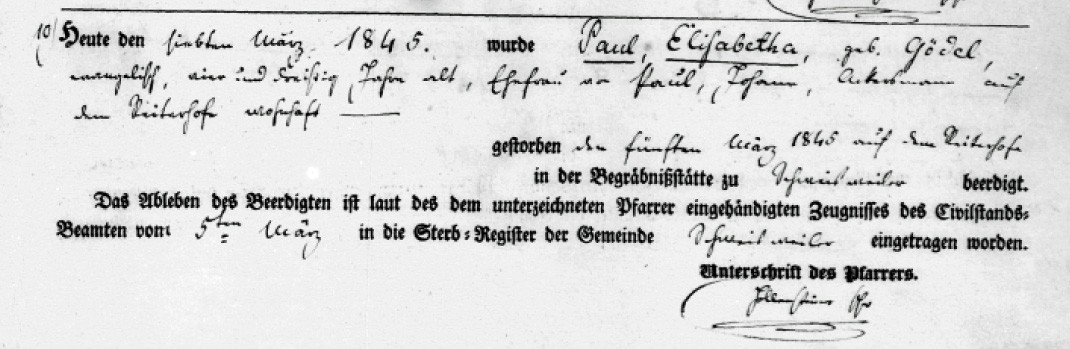 10/ Heute den siebten März 1845. wurde Paul, Elisabetha, geb. Gödel,
evangelisch, vier und dreißig Jahre alt, Ehefrau von Paul, Johann, Ackersmann auf
dem Reiterhofe wohnhaft
gestorben den fünften März 1845 auf dem Reiterhofe
in der Begräbnißstätte zu Schweisweiler beerdigt.
Das Ableben des Beerdigten ist laut des dem unterzeichneten Pfarrer eingehändigten Zeugnisses des Civilstands-
Beamten vom 5ten März in die Sterb-Register der Gemeinde Schweisweiler eingetragen worden.
Unterschrift des Pfarrers.